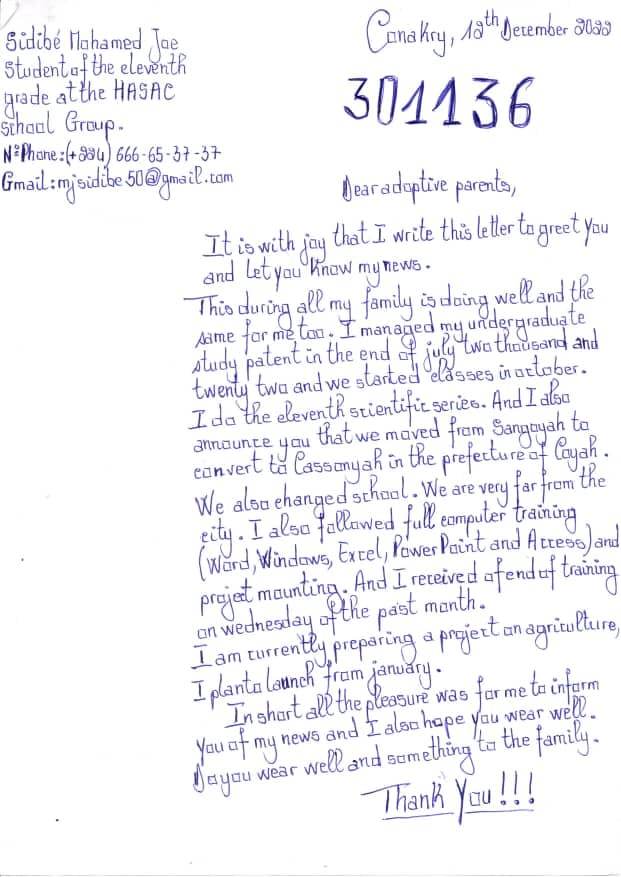 Sidibé Mohamed Joe
Student of the eleventh
grade at the HASAC
School Group.
N°Phone:(+224) 666-65-37-37
Gmail:mjsidibe50@gmail.com
Conakry, 12th December 2022
301136
Dear adoptive parents,
It is with joy that I write this letter to greet you
and let you know my news.
This during all my family is doing well and the
same for me too. I managed my undergraduate
study patent in the end of july two thousand and
twenty two and we started classes in october.
I do the eleventh scientific series. And I also
announce you that we moved from Sangoyah to
convert to Cassonyah in the prefecture of Coyah.
We also changed school. We are very far from the
city. I also followed full computer training
(Word, Windows, Excel, PowerPoint and Access) and
project mounting. And I received a fend of training
on wednesday of the past month.
I am currently preparing a project on agriculture,
I plan to launch from january.
In short all the pleasure was for me to inform
you of my news and I also hope you wear well.
Do you wear well and something to the family.
Thank You!!!